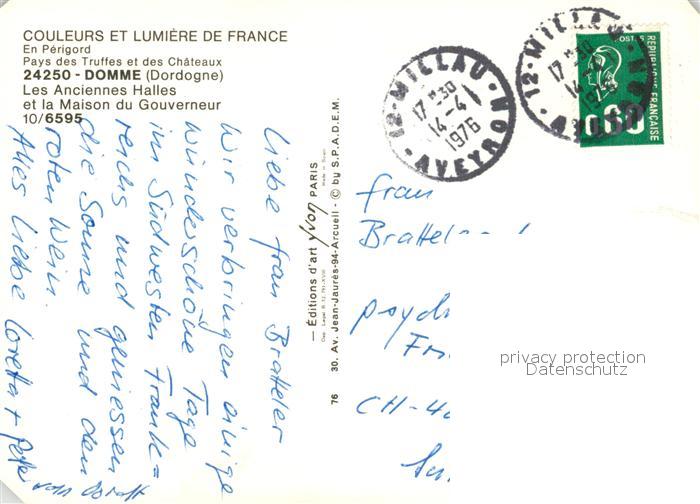 COULEURS ET LUMIÈRE DE FRANCE
En Périgord
Pays des Truffes et des Châteaux
24250 - DOMME (Dordogne)
Les Anciennes Halles
et la Maison du Gouverneur
10/6595
Liebe Frau Bratteler
Wir verbringen einige
wunderschöne Tage
im Südwesten Frank=
reichs und geniessen
die Sonne und den
roten Wein.
Alles Liebe Loretta +
— Éditions d'art Yvon PARIS
76 30. Av. Jean-Jaurès-94-Arcueil - © by S.P.A.D.E.M.
12-MILLAU
17 H 30
14-4
1976
AVEYRON
12-MILLAU
17 H 30
14-4
1976
AVEYRON
POSTES
REPUBLIQUE FRANÇAISE
0,60
Frau
Brattel
psych
CH-4
privacy protection
Datenschutz